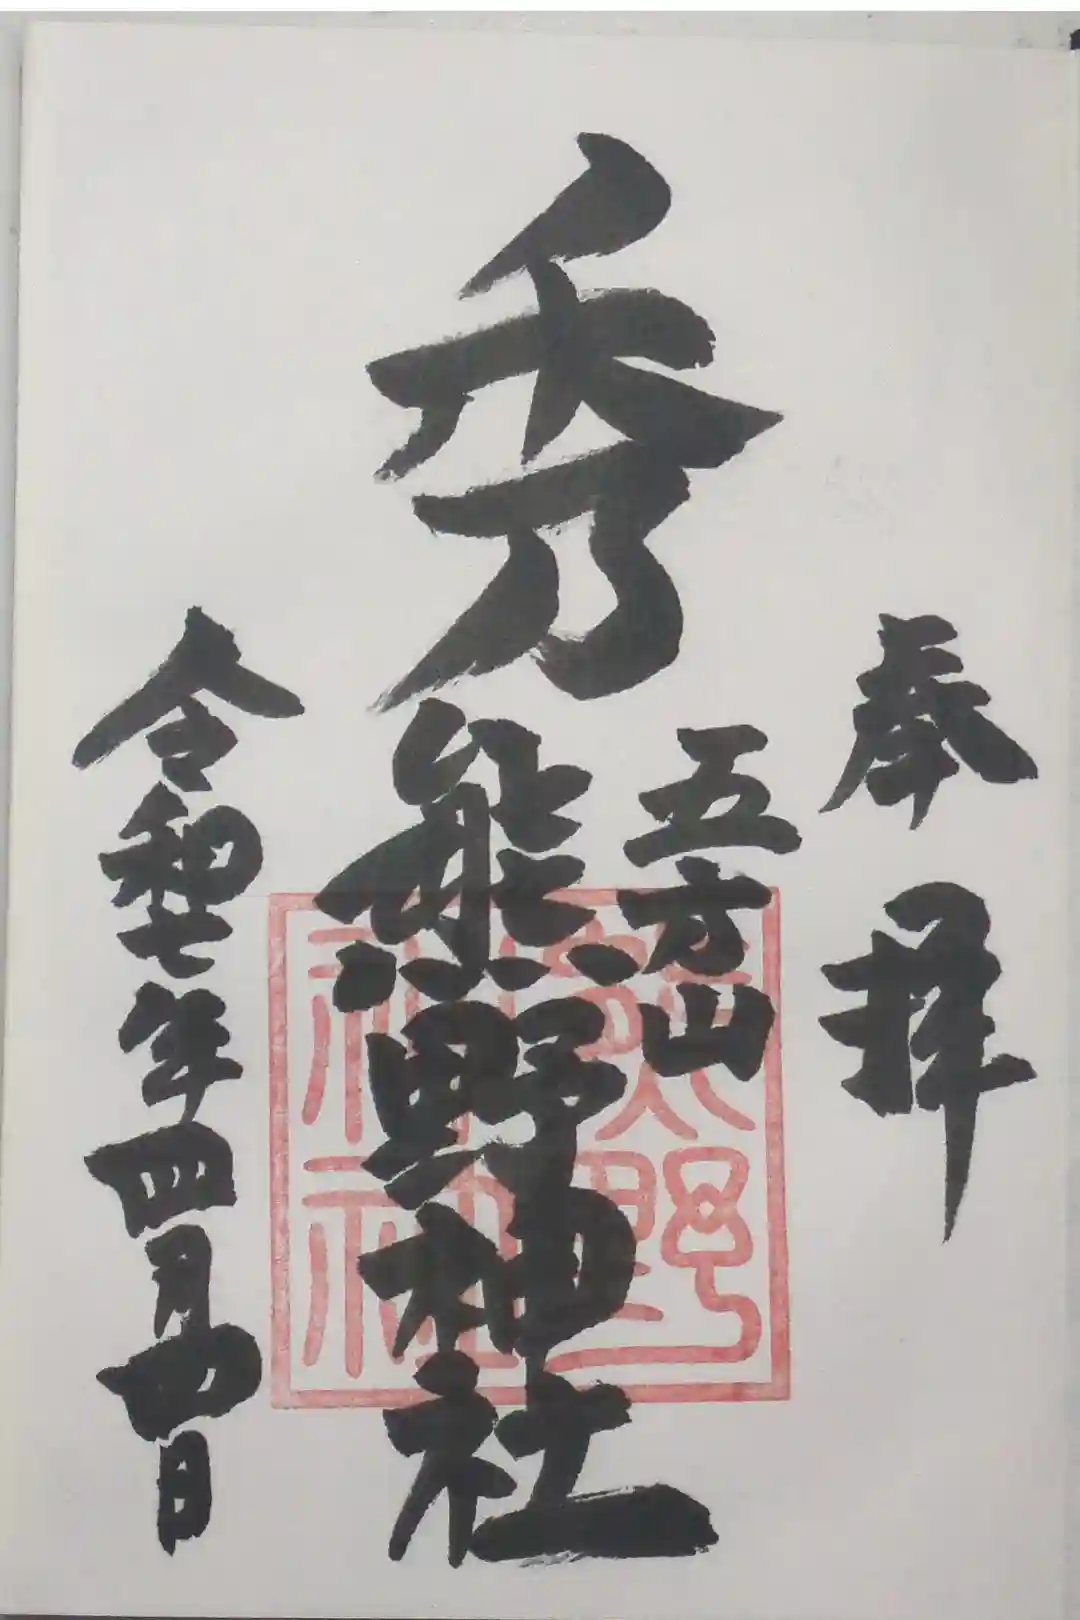 奉拝
五方山
秀
熊野神社
令和七年四月四日
熊野
神社